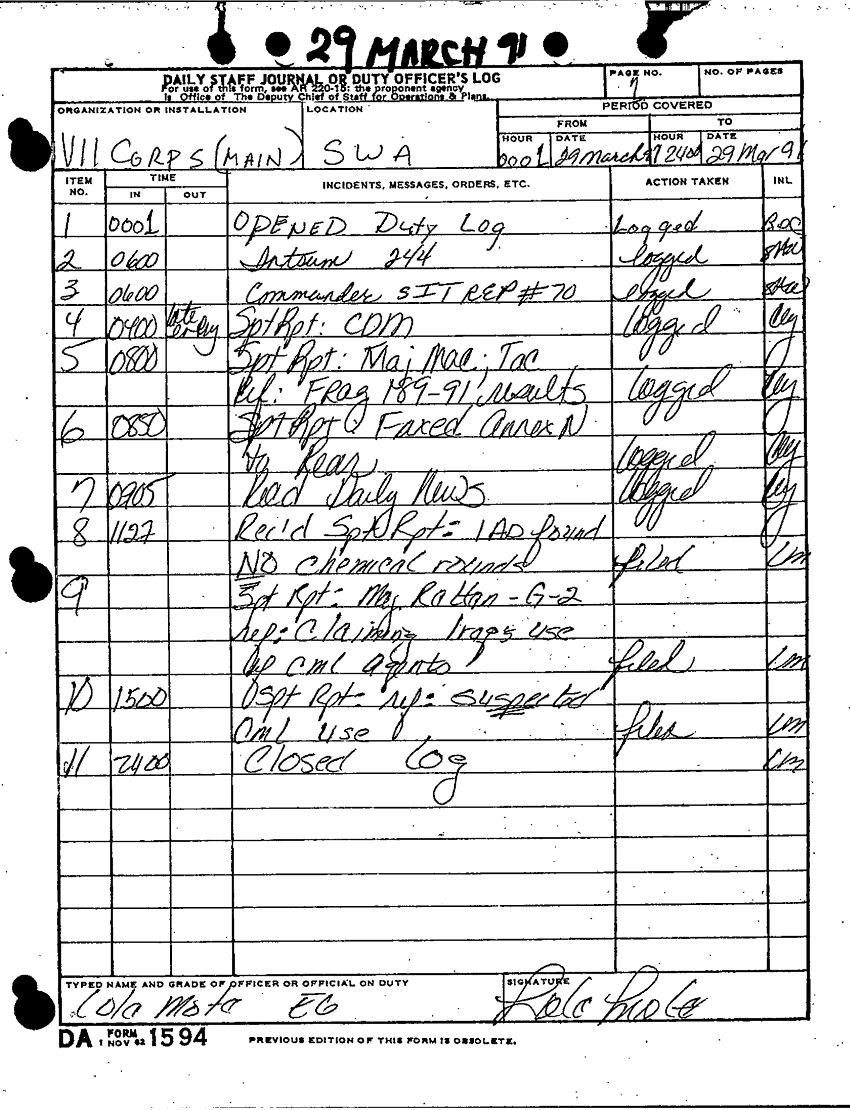 29 MARCH 91
DAILY STAFF JOURNAL OR DUTY OFFICER'S LOG
For use of this form, see AR 220-15; the proponent agency
is Office of The Deputy Chief of Staff for Operations & Plans.
PAGE NO.
NO. OF PAGES
1
ORGANIZATION OR INSTALLATION
LOCATION
PERIOD COVERED
FROM
TO
HOUR DATE HOUR DATE
VII CORPS (MAIN) SWA
0001 29 March 91 2400 29 Mar 91
ITEM NO.
TIME
IN OUT
INCIDENTS, MESSAGES, ORDERS, ETC.
ACTION TAKEN
INL
1 0001 OPENED Duty Log Logged
2 0600 Intsum 244 logged
3 0600 Commander SITREP #70 logged
4 0400 late entry Spt Rpt: CDM logged
5 0800 Spt Rpt: Maj Mac; Tac
Ref: Frag 189-91 results logged
6 0850 Spt Rpt Faxed Annex N
to Rear logged
7 0905 Read Daily News logged
8 1127 Rec'd Spt Rpt: 1AD found
NO chemical rounds filed Lm
9 Spt Rpt: Maj Rattan - G-2
ref: Claiming Iraqs use
of cml agents filed Lm
10 1500 Spt Rpt: ref: suspected
Cml use filed Lm
11 2400 Closed Log Lm
TYPED NAME AND GRADE OF OFFICER OR OFFICIAL ON DUTY
SIGNATURE
Lola Mota E6
Lola Mota
DA FORM 1 NOV 62 1594
PREVIOUS EDITION OF THIS FORM IS OBSOLETE.